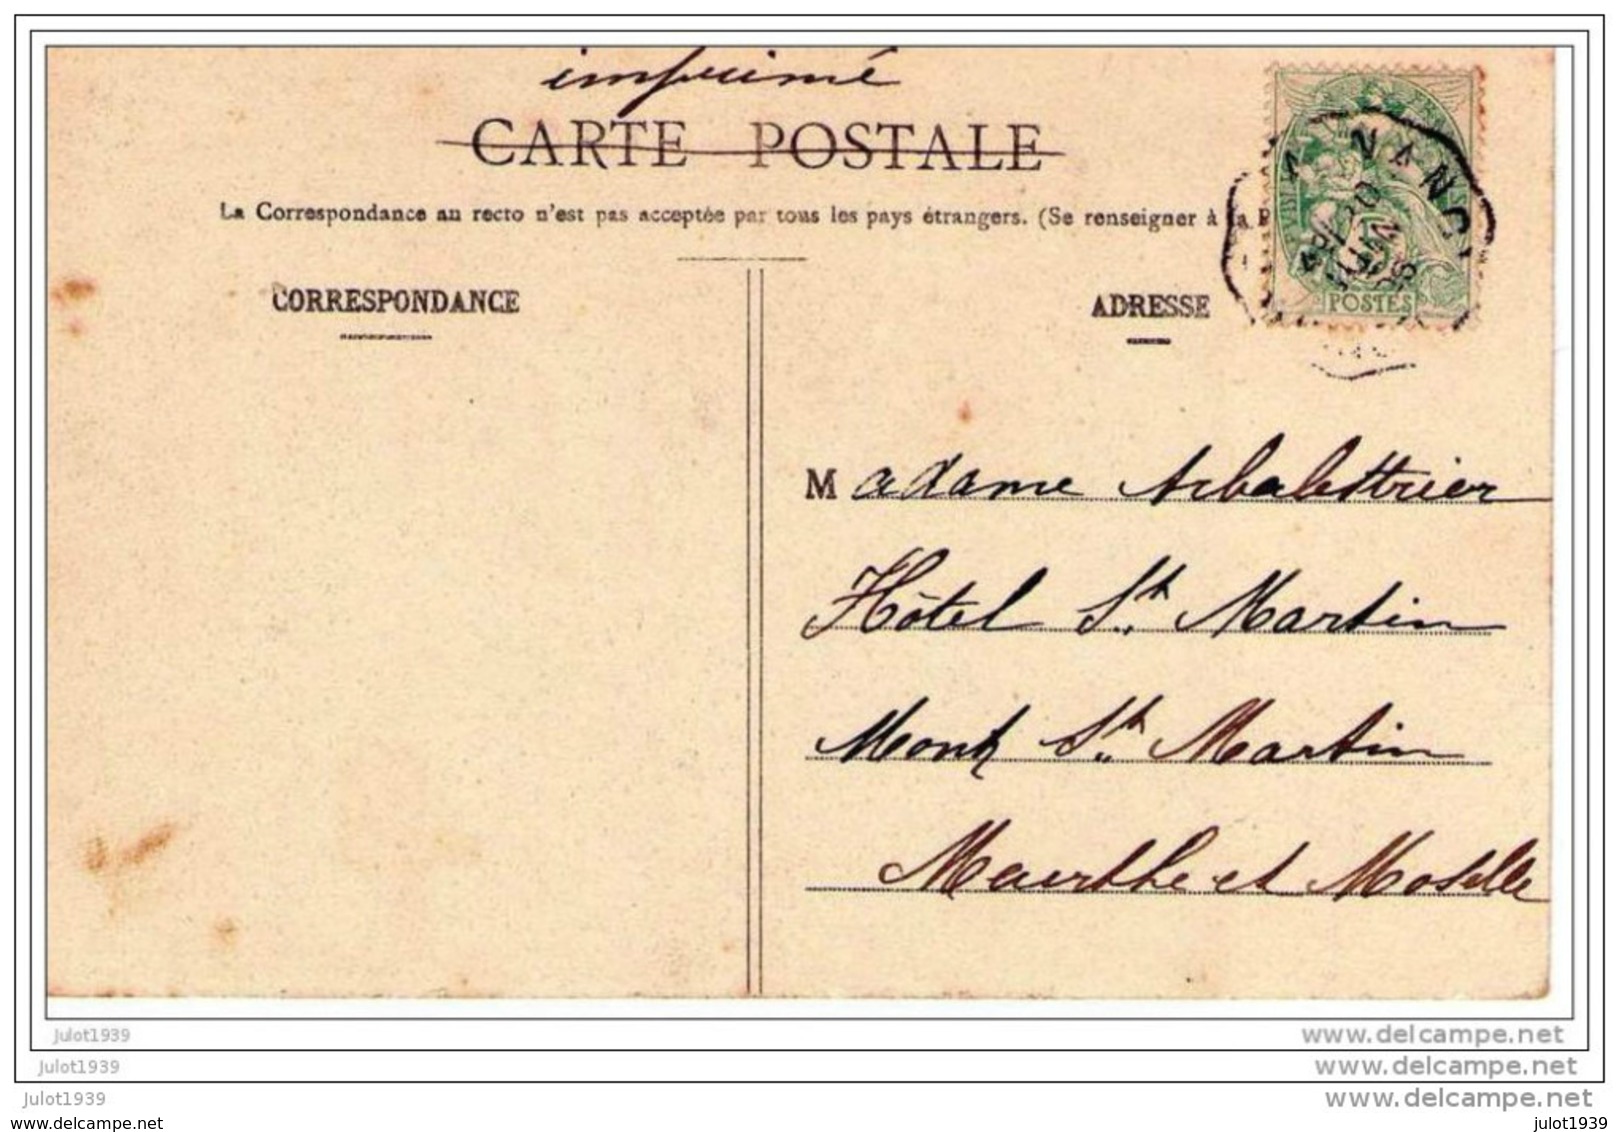 imprimé
CARTE POSTALE
La Correspondance au recto n'est pas acceptée par tous les pays étrangers. (Se renseigner à la P
CORRESPONDANCE
ADRESSE
NANCY
20
JUIN
POSTES
Madame Arbalettrier
Hôtel St. Martin
Mont St. Martin
Meurthe et Moselle
julot1939
www.delcampe.net
julot1939
www.delcampe.net
julot1939
www.delcampe.net
julot1939
julot1939